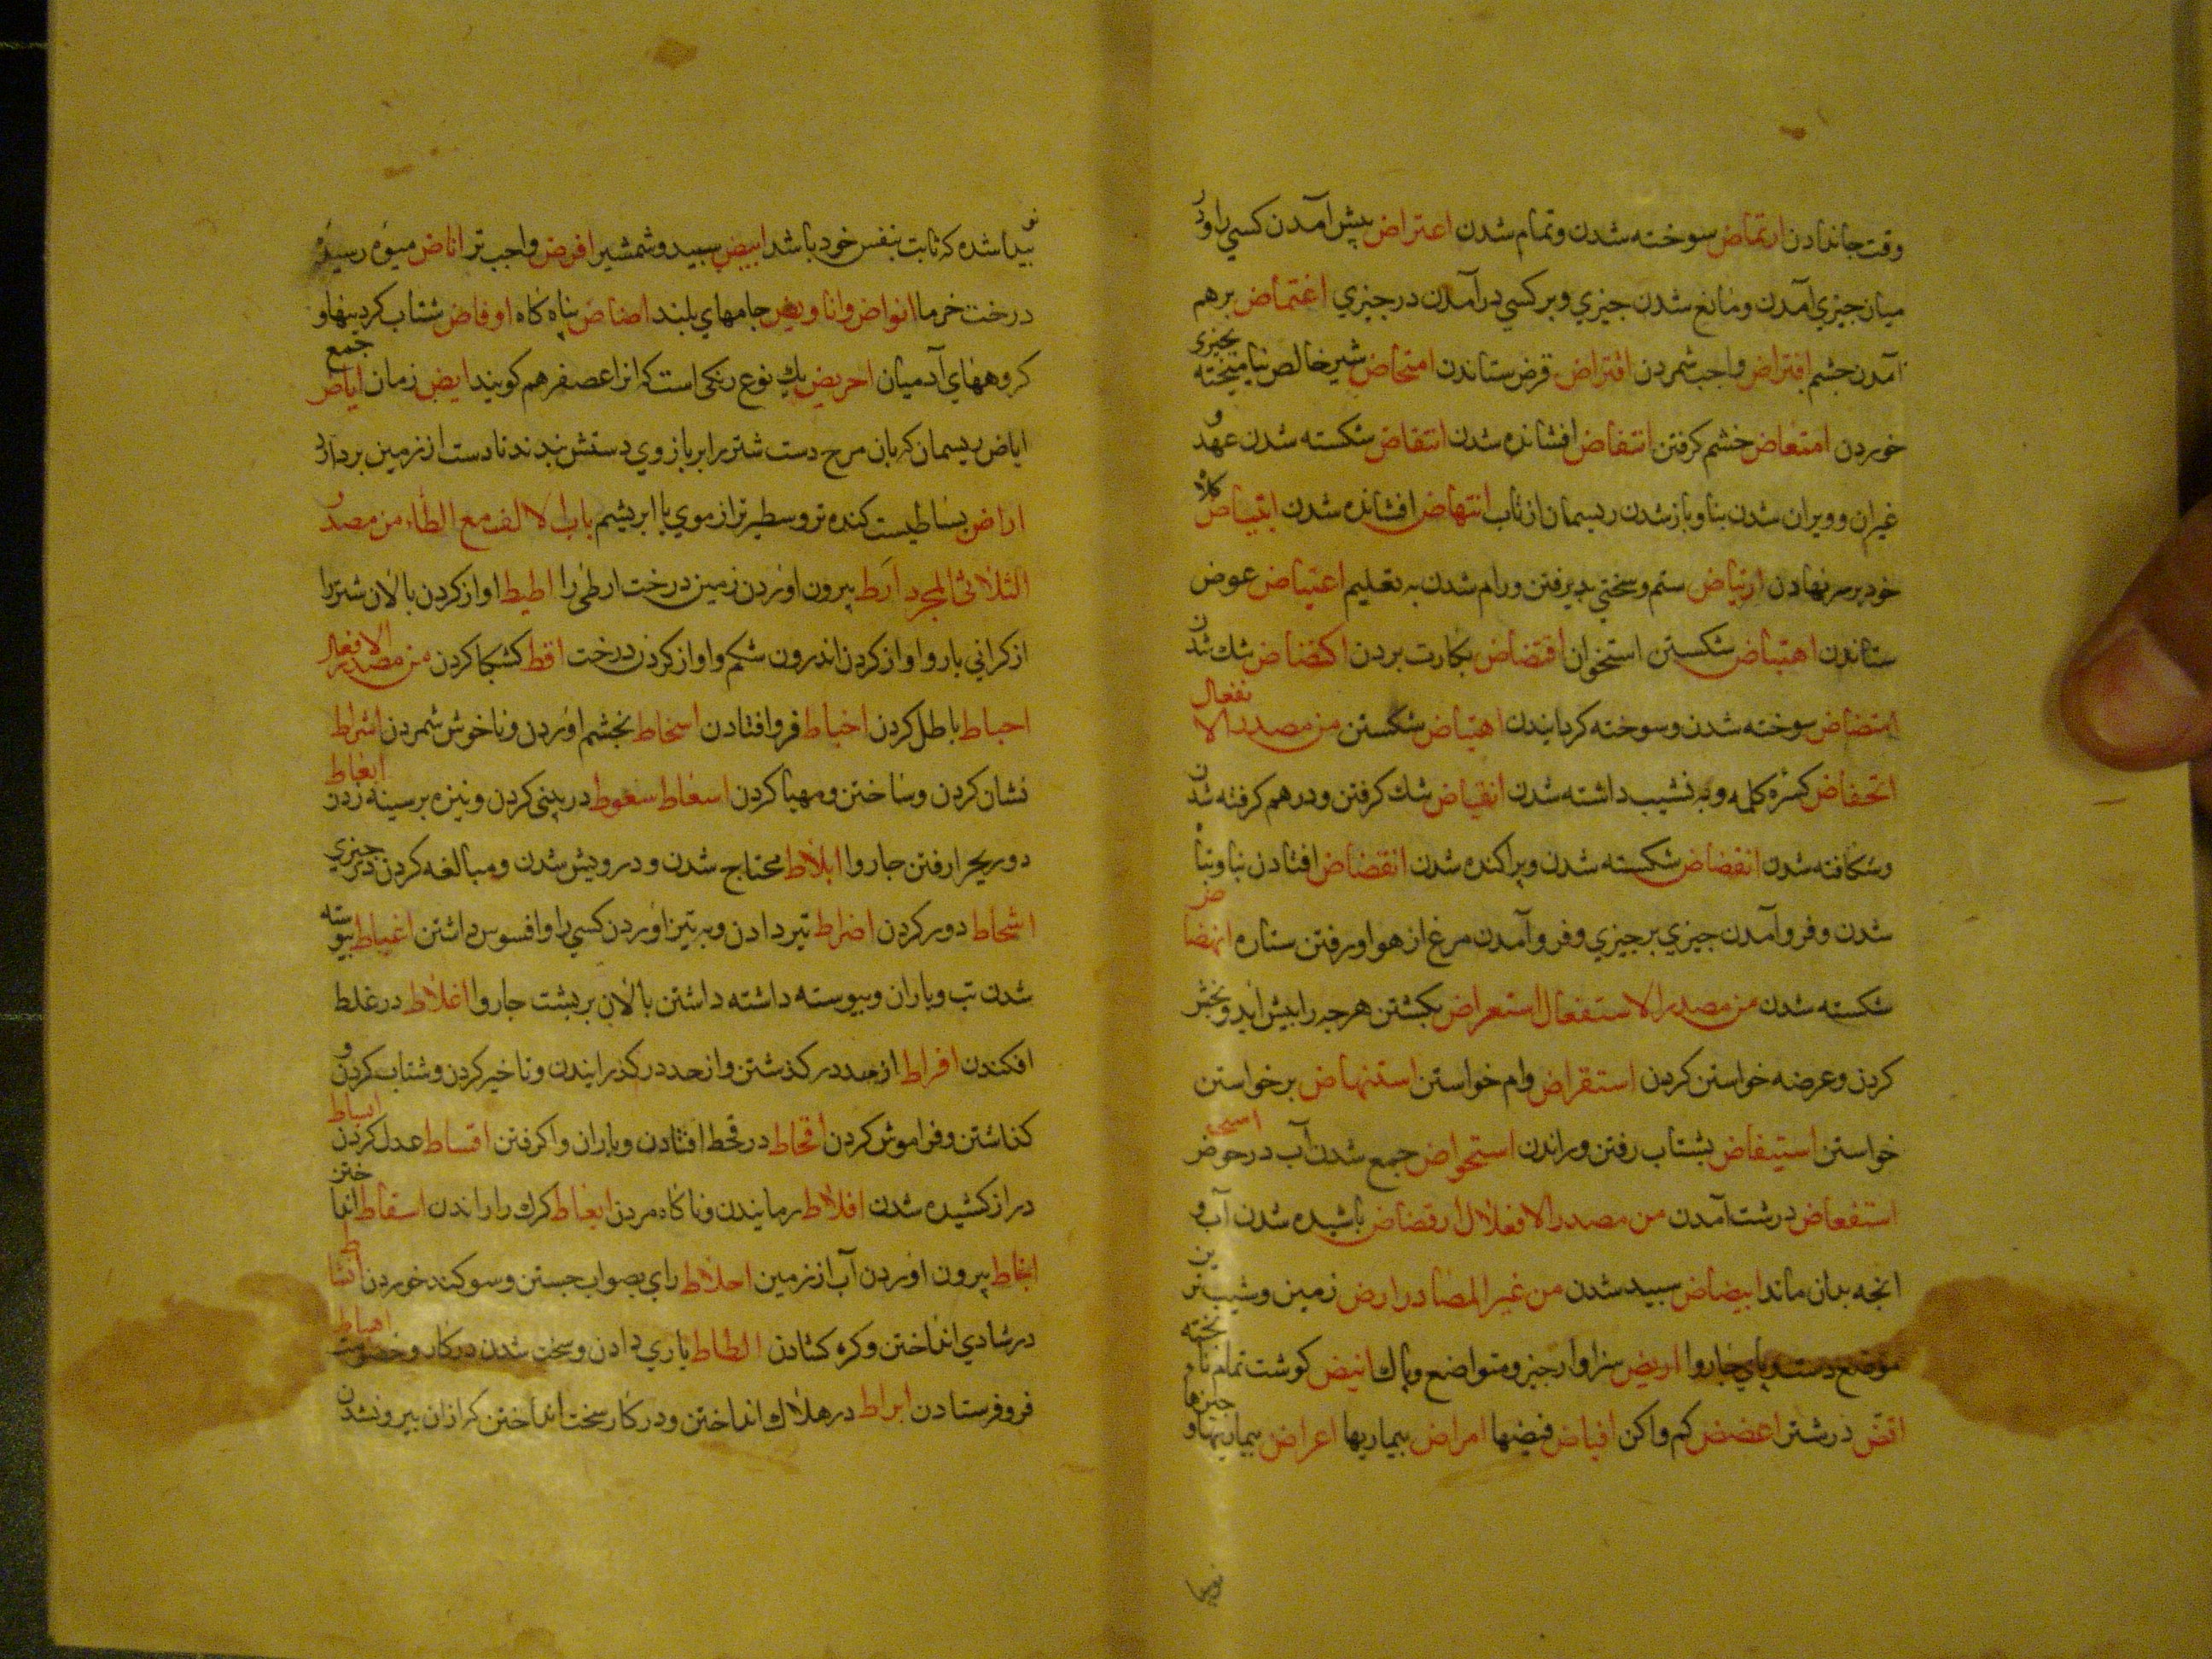 وقت جاندادن ارتماض سوخته شدن وتمام شدن اعتراض پیش آمدن کسی را ودر
میان جیزي آمدن ومانع شدن جیزي وبر کسي درآمدن در جیزي اغتماض برهم
آمدن جشم افتراض واجب شمردن اقتراض قرض ستاندن امتحاض شیر خالص نیامیخته بجیزی
خوردن امتعاض خشم کرفتن انتفاض افشانده شدن انتقاض شکسته شدن عهد و
غیر ان وویران شدن بنا وباز شدن ریسمان از تاب انتهاض افشانده شدن ابتیاض کلاه
خود بر سر نهادن ارتیاض ستم وسختي پذیرفتن ورام شدن به تعلیم اعتیاض عوض
ستاندن اهتیاض شکستن استخوان اقتضاض بکارت بردن اکتضاض شك شدن
ابتضاض سوخته شدن وسوخته کردانیدن اهتیاض شکستن من مصدر الانفعال
انخفاض کسره کلمه وبه نشیب داشته شدن انقیاض شك کرفتن ودرهم کرفته شدن
وشکافته شدن انفضاض شکسته شدن وپراکنده شدن انقضاض افتادن بنا وتباه
شدن وفروآمدن جیزي بر جیزي وفروآمدن مرغ از هوا ورفتن ستاره انهضاض
شکسته شدن من مصدر الاستفعال استعراض بکشتن هرجه را پیش اید وبخش
کردن وعرضه خواستن کردن استقراض وام خواستن استنهاض برخواستن
خواستن استیفاض بشتاب رفتن وراندن استحواض جمع شدن آب در حوض
استفعاض درشت آمدن من مصدر الافعلال ارفضاض پاشیده شدن آب و
انجه بدان ماند ابیضاض سبید شدن من غیر المصادر ارض زمین وشیب ترین
موضع دست وپاي جاروا اریض سزاوار جیز ومتواضع وپاك انیض کوشت تمام ناپخته
انض درشتر اغضض کم واکن افیاض فیضها امراض بیماریها اعراض بیماریها و جیزها
بیدا شده که ثابت بنفس خود باشد ابیض سبید وشمشیر افرض واجب تر اناض میوه رسیده
درخت خرما انواض واناویض جامهاي بلند اضاض پناه کاه اوفاض شتاب کردنها و
کروههاي آدمیان احریض یك نوع رنکی است که انرا عصفر هم کویند ایض زمان ایاض جمع
ایاض ریسمان که بان مرح دست شتر برابر بازوي دستش بندند تا دست از زمین بردارد
اراض بساطیست کنده تر وسطبرتر از موي یا ابریشم باب الالف مع الطاء من مصدر
الثلاثی المجرد ارط بیرون اوردن زمین درخت ارطی را اطیط اواز کردن پالان شتر را
از کراني بار واواز کردن اندرون شکم واواز کردن درخت اقط کشکبا کردن من مصدر الافعال
احباط باطل کردن اخباط فرو افتادن اسخاط بخشم اوردن وناخوش شمردن اشراط
نشان کردن وساختن ومهیا کردن اسعاط سعوط در بینی کردن ونیزه بر سینه زدن ابعاط
دور بجرا رفتن جاروا ابلاط محتاج شدن ودرویش شدن ومبالغه کردن در جیزي
اشحاط دور کردن اضراط تیز دادن وبه تیز اوردن کسي را وافسوس داشتن اغباط بیوسته
شدن تب وباران وبیوسته داشته داشتن پالان بر بشت جاروا اغلاط در غلط
افکندن افراط از حد در کذشتن واز حد در کذرانیدن وتاخیر کردن وشتاب کردن و
کذاشتن وفراموش کردن اقحاط در قحط افتادن وباران واکرفتن اقساط عدل کردن ابساط
دراز کشیده شدن افلاط رمانیدن وناکاه مردن ایعاط کرك را راندن اسقاط انداختن
انباط بیرون اوردن آب از زمین احلاط راي بصواب جستن وسوکند خوردن انشاط
در شادي انداختن وکره کشادن الطاط یاري دادن وسخت شدن در کار وخصومت اهباط
فرو فرستادن ابراط در هلاك انداختن ودر کار سخت انداختن که ازان بیرون شدن